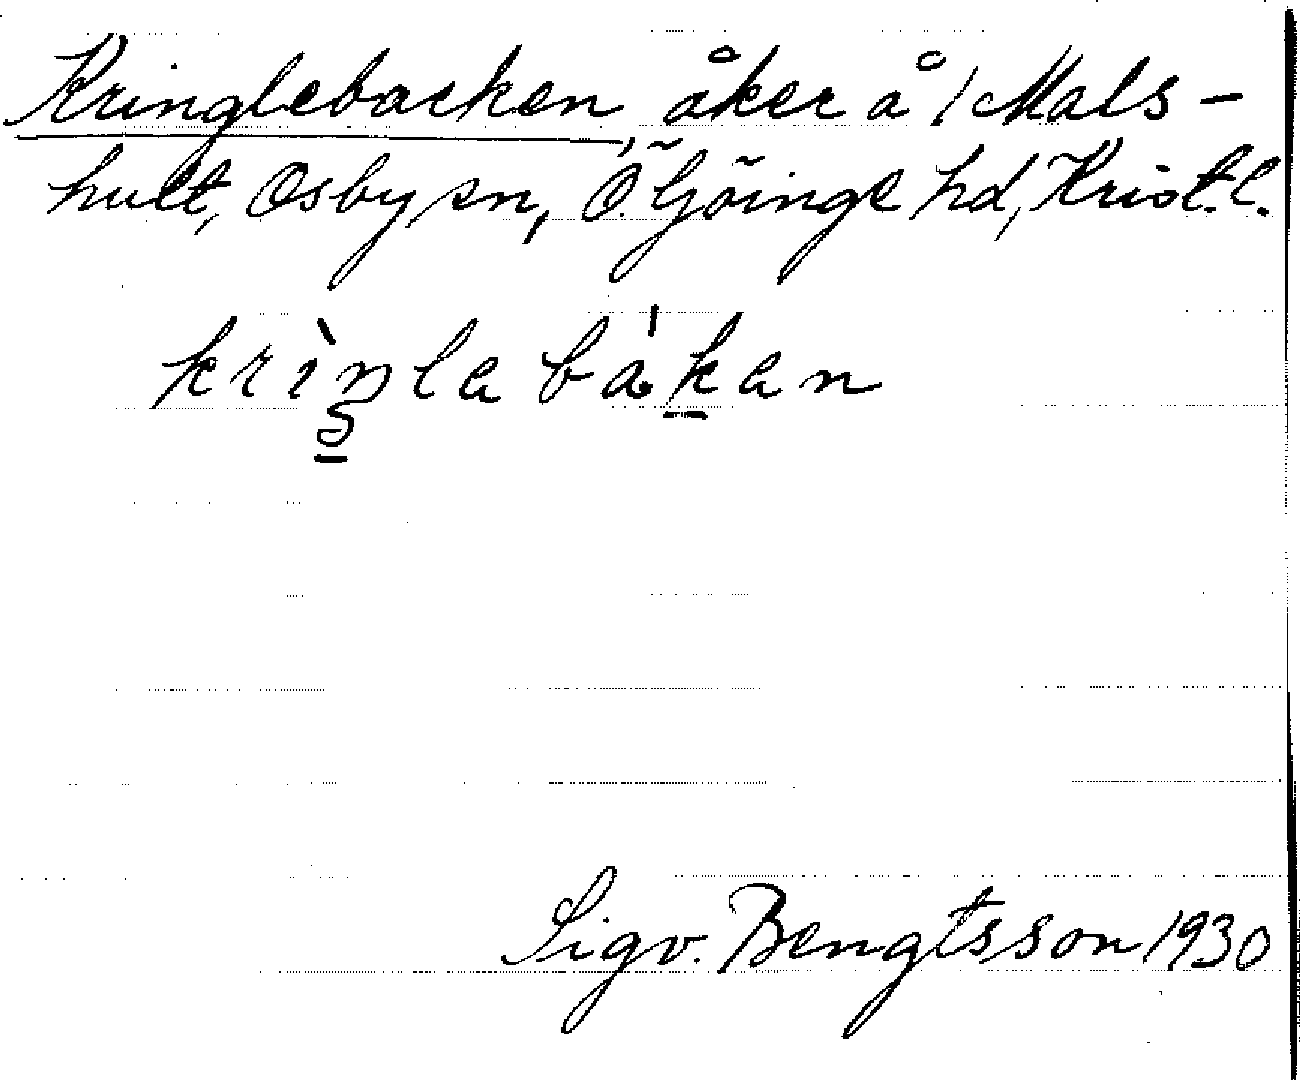 Kringlebacken, åker å 1 Mals-
hult, Osby sn, Ö. Göinge hd, Krist. l.
krìŋla bákan
Sigv. Bengtsson 1930